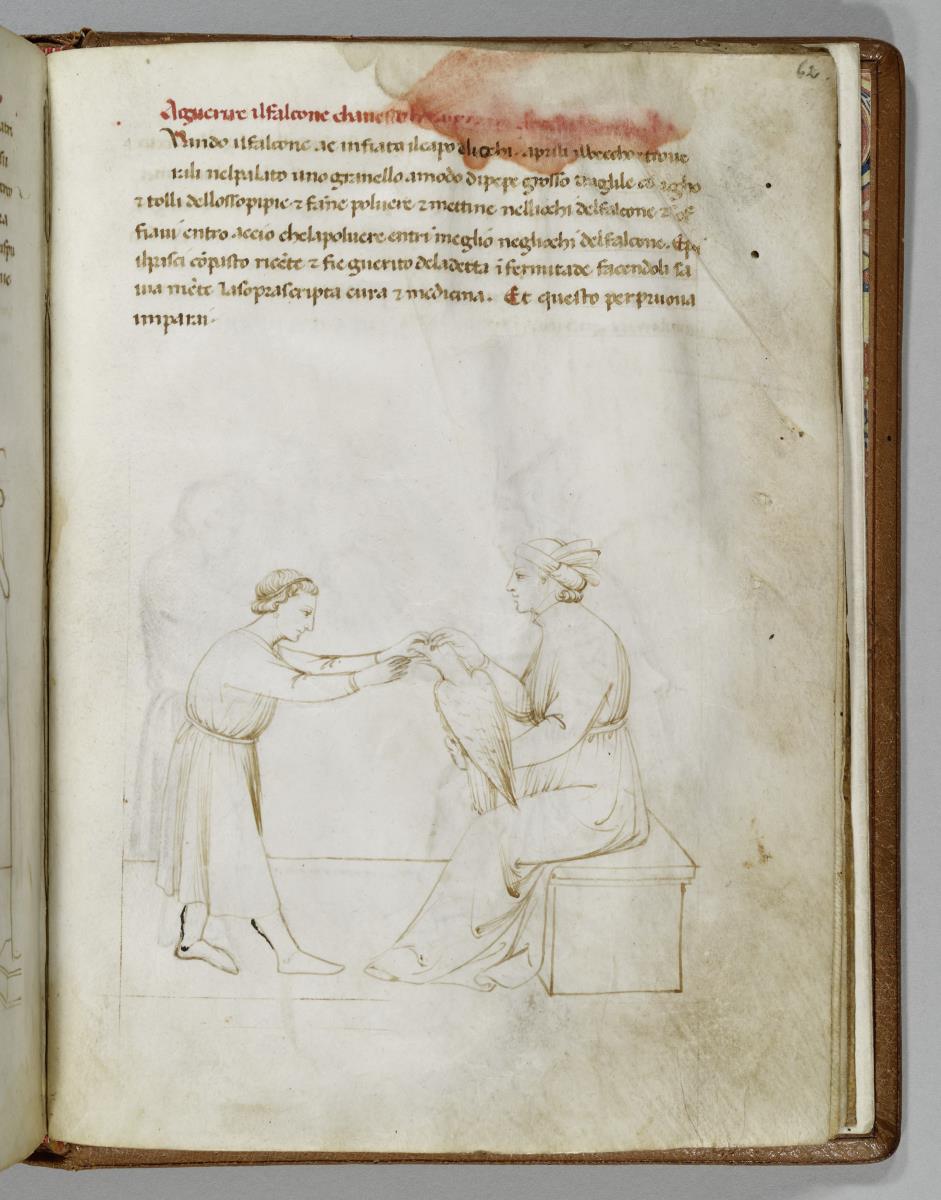 62
Aguerire ilfalcone chauesso
Quando ilfalcone ae infiato ilcapo oliochi. aprili ilbeccho & troue
rali nelpalato uno granello amodo dipepe grosso taglile
& tolli dellossopipie & fa͞ne poluere & mettine nelliochi delfalcone &
fiaui entro accio chelapoluere entri meglio negliochi delfalcone. Epoi
ilpasci co͞pasto rice͞te & fie guerito deladetta i͞fermitade facendoli sa
uia me͞te lasoprascripta cura & medicina. Et questo perpruoua
imparai.